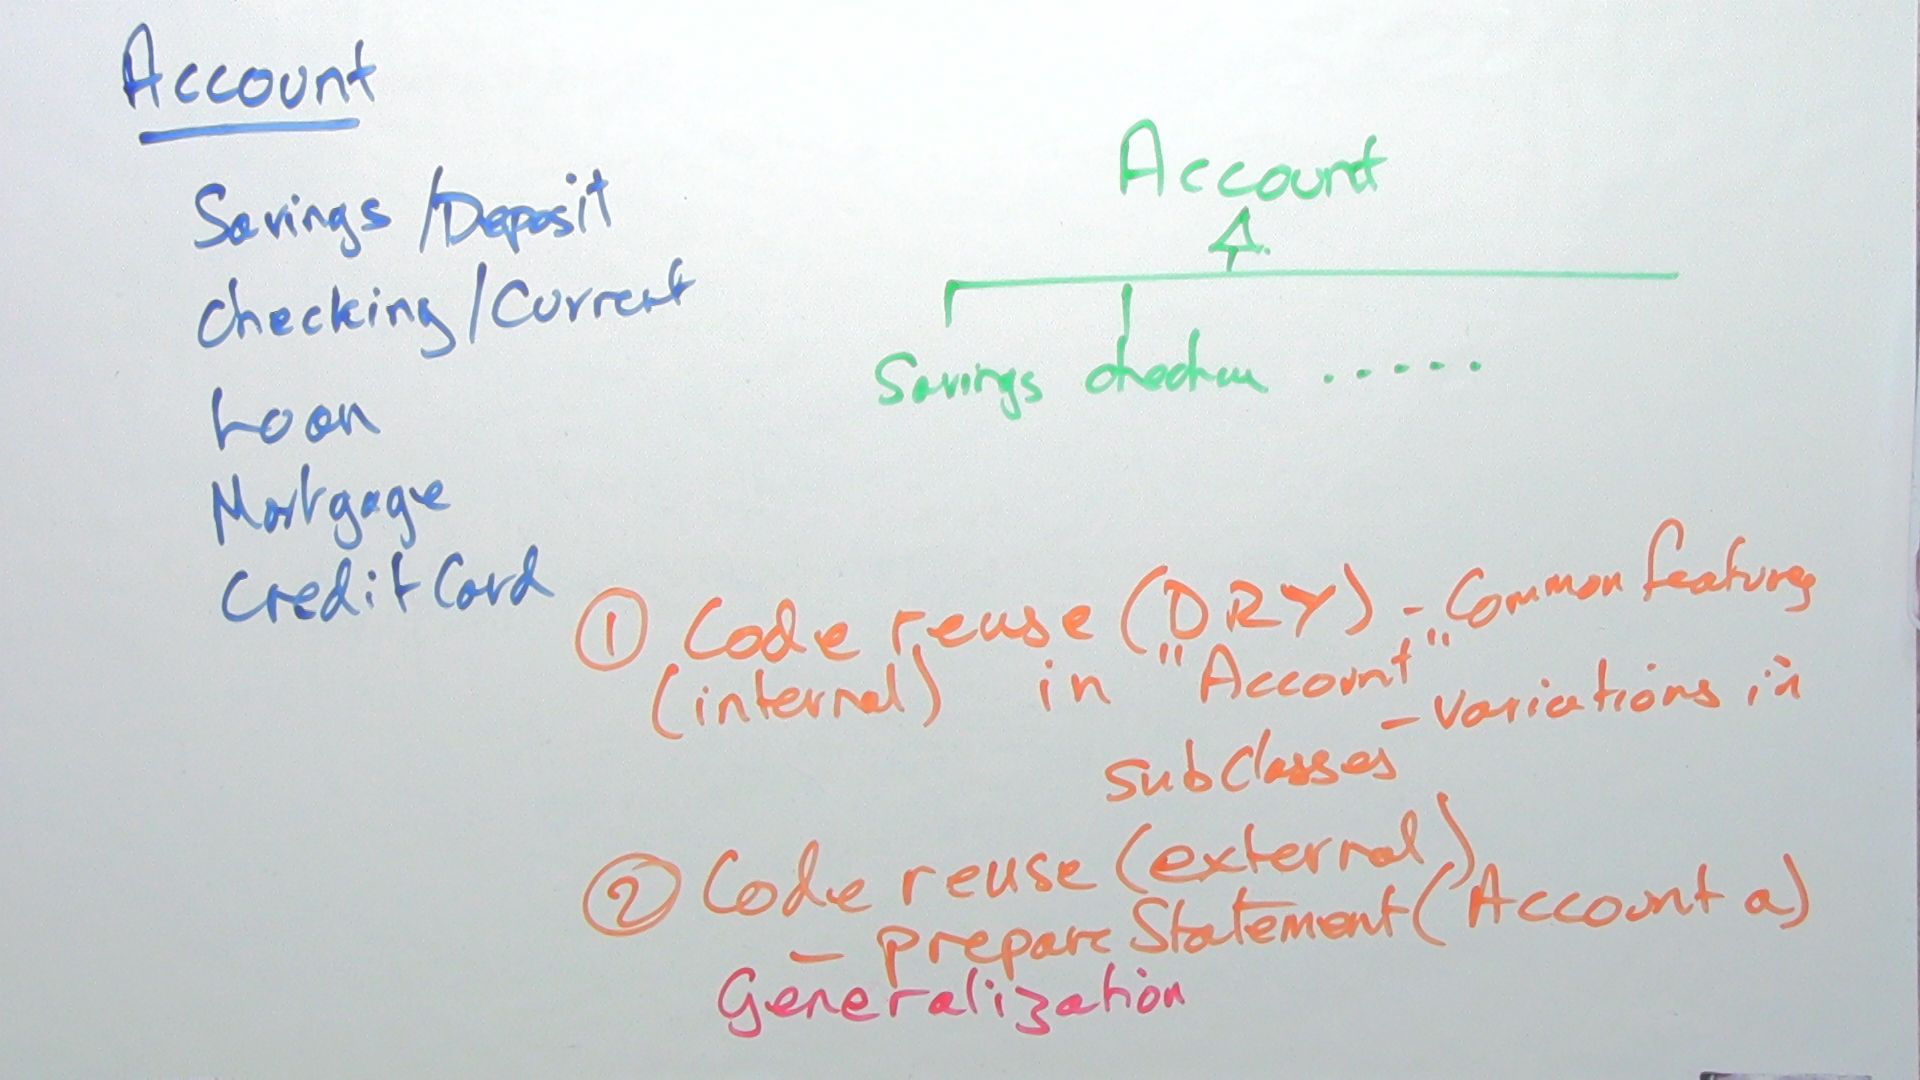 Account
Savings/Deposit
Checking/Current
Loan
Mortgage
Credit Card
Account
Savings
.....
① Code reuse (DRY) - Common features
(internal) in "Account"
- variations in
subclasses
② Code reuse (external)
- prepareStatement(Account a)
Generalization